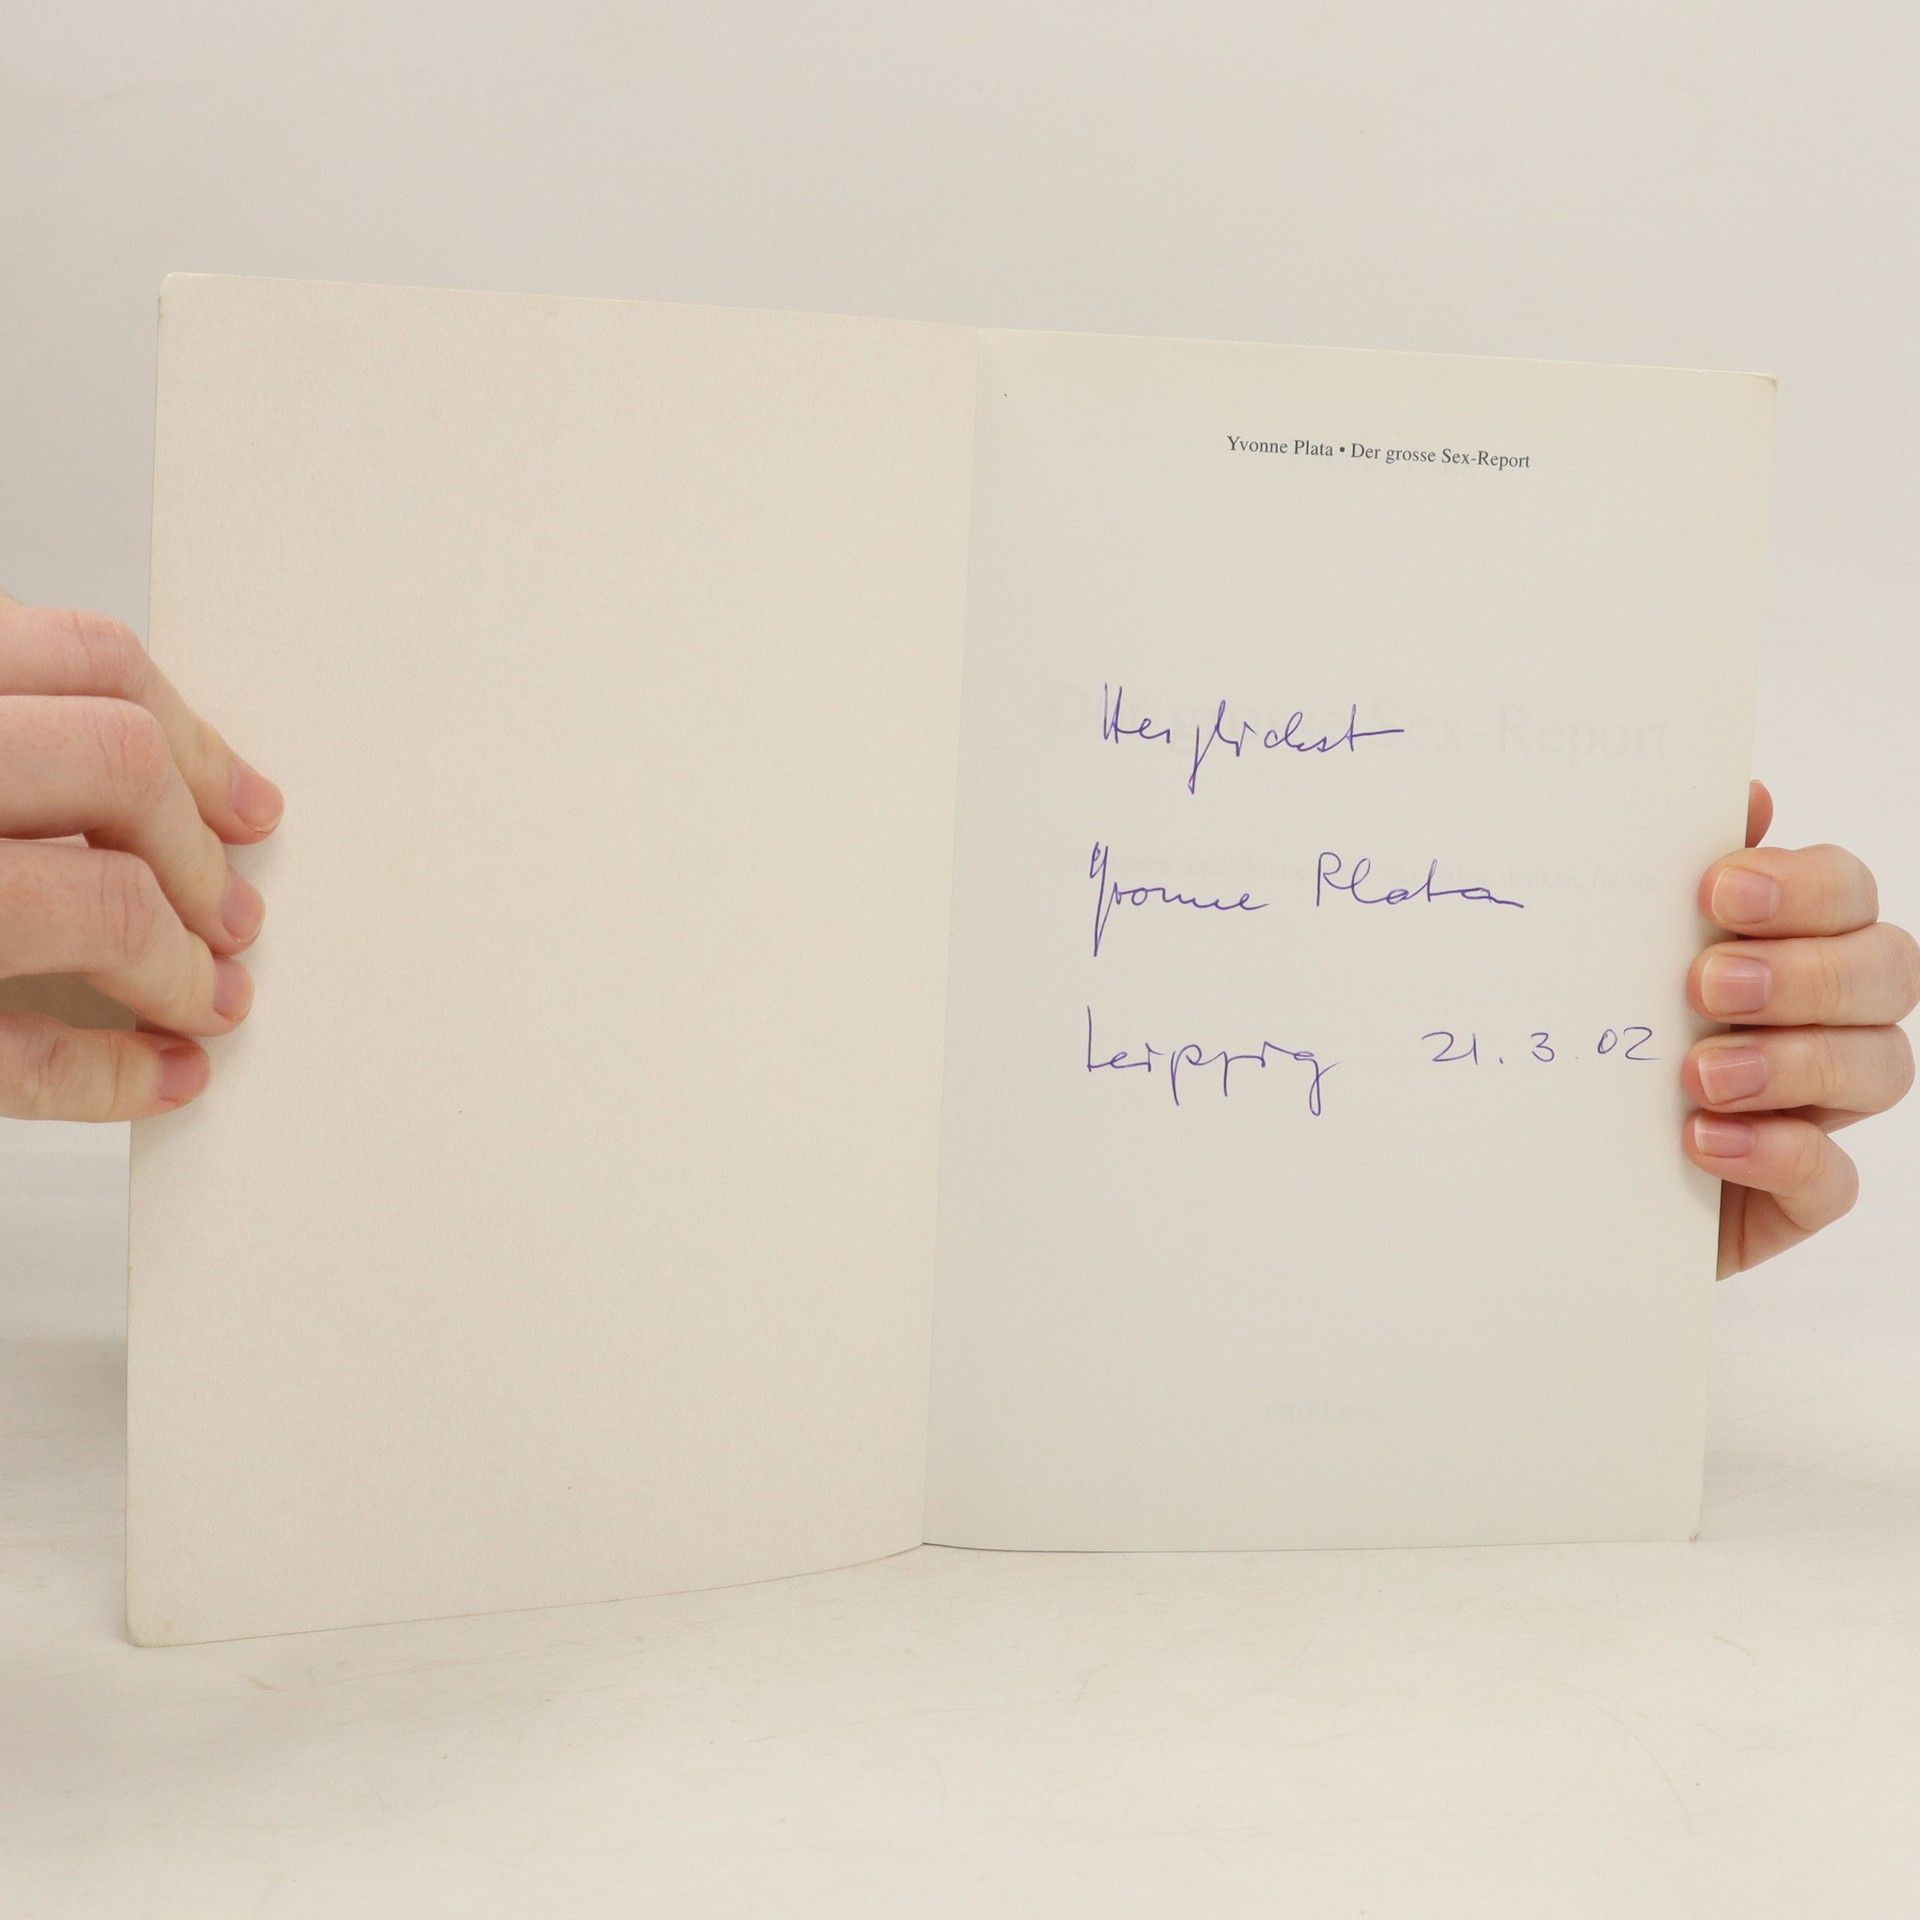 Yvonne Plata • Der grosse Sex-Report
Herzlichst
Yvonne Plata
Leipzig 21.3.02